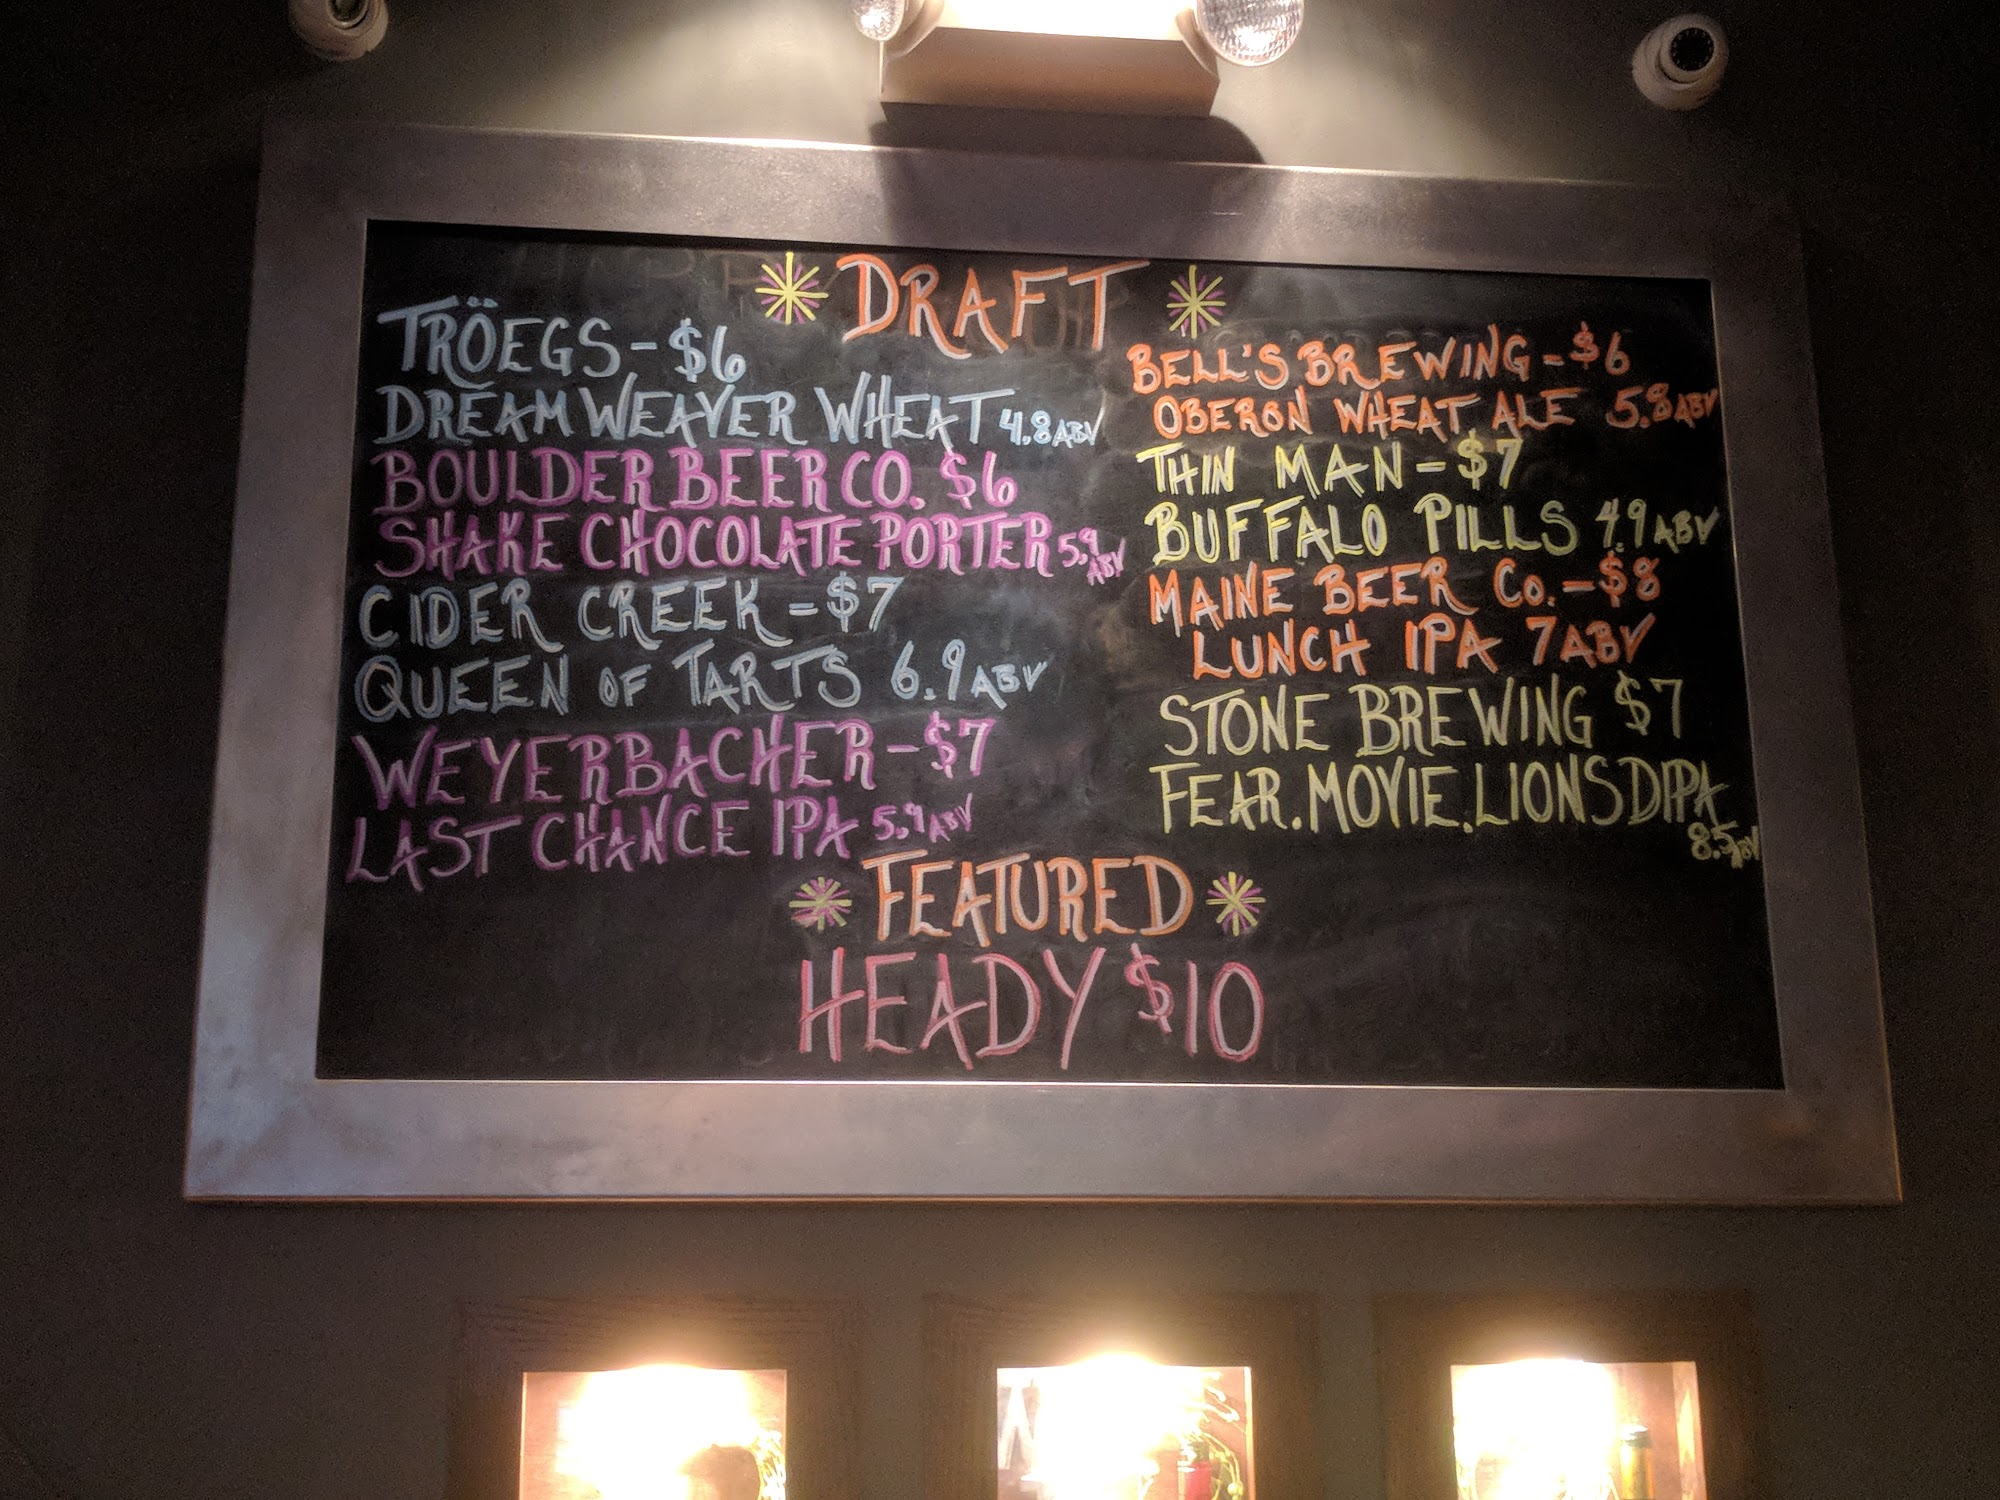 DRAFT
TRÖEGS - $6
DREAM WEAVER WHEAT 4.8 ABV
BOULDER BEER CO. $6
SHAKE CHOCOLATE PORTER 5.9 ABV
CIDER CREEK - $7
QUEEN OF TARTS 6.9 ABV
WEYERBACHER - $7
LAST CHANCE IPA 5.9 ABV
BELL'S BREWING - $6
OBERON WHEAT ALE 5.8 ABV
THIN MAN - $7
BUFFALO PILLS 4.9 ABV
MAINE BEER Co. - $8
LUNCH IPA 7 ABV
STONE BREWING $7
FEAR.MOVIE.LIONS DIPA
8.5 ABV
FEATURED
HEADY $10